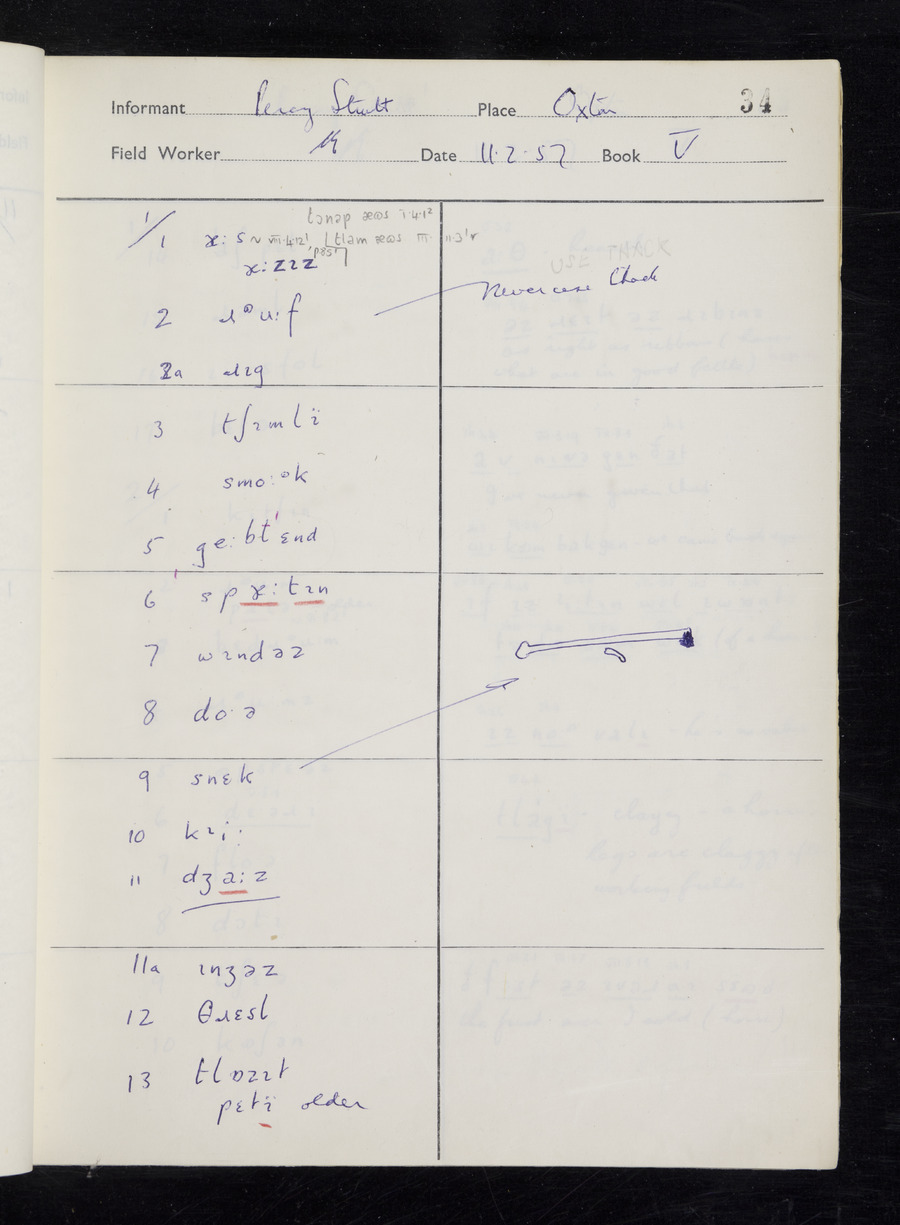 Informant Percy Strutt Place Oxton 34
Field Worker Date 11.2.57 Book V
1/
1 ɤ: s ~
ɤ:zɪz
USE THACK
2 ɹᵊu:f
never use thack
2a ɹɪg
3 tʃɪmlï
4 smo:ᵊk
5 ge:bt'ɛnd
6 spɤ:tɪn
7 wɪndəz
8 do·ə
9 snɛk
10 kɪi:
11 dʒa:z
11a ɪnʒəz
12 θɹɛsl
13 tlɒzɪt
pɛtï older